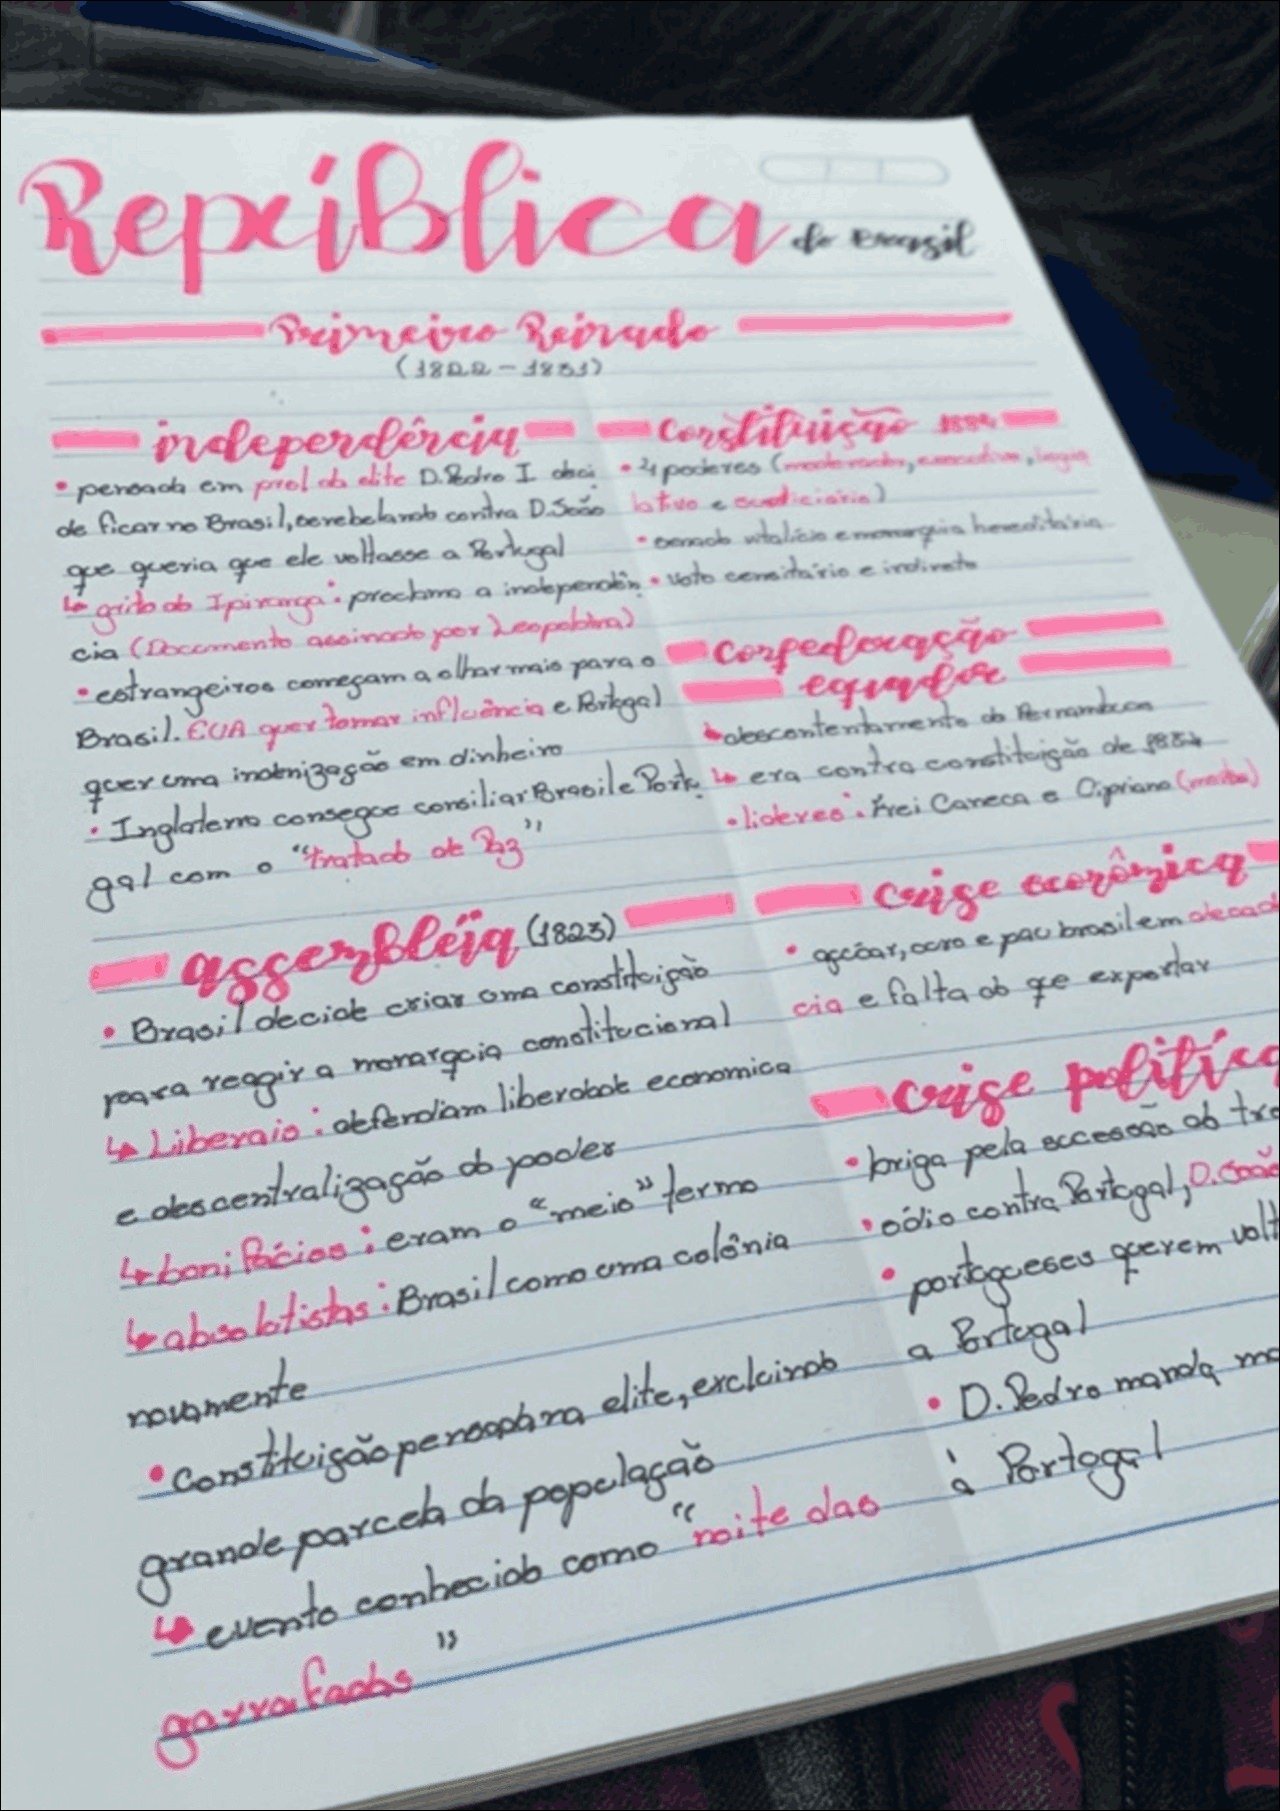 República do Brasil
Primeiro Reinado
(1822-1831)
independência
• pensada em prol da elite D.Pedro I deci
de ficar no Brasil, se rebelando contra D.João
que queria que ele voltasse a Portugal
↳ grito do Ipiranga: proclama a independên
cia (Documento assinado por Leopoldina)
• estrangeiros começam a olhar mais para o
Brasil. EUA quer tomar influência e Portugal
quer uma indenização em dinheiro
• Inglaterra consegue consiliar Brasil e Portu
gal com o "tratado de Paz"
assembléia (1823)
• Brasil decide criar uma constituição
para reagir a monarquia constitucional
↳ Liberais: defendiam liberdade economica
e descentralização do poder
↳ bonifácios: eram o "meio" termo
↳ absolutistas: Brasil como uma colônia
novamente
• Constituição pensada pra elite, excluindo
grande parcela da população
↳ evento conhecido como "noite das
garrafadas"
Constituição
• 4 poderes (moderador, executivo, legis
lativo e judiciário)
• senado vitalício e monarquia hereditária
• voto censitário e indireto
Confederação
equador
↳ descontentamento do Pernambuco
↳ era contra constituição de
• lideres: Frei Caneca e Cipriano
crise econômica
• açúcar, ouro e pau brasil em decadên
cia e falta do que exportar
crise polític
• briga pela sucessão do tro
• oódio contra Portugal, D.João
• portugueses querem volt
a Portugal
• D.Pedro manda
à Portugal